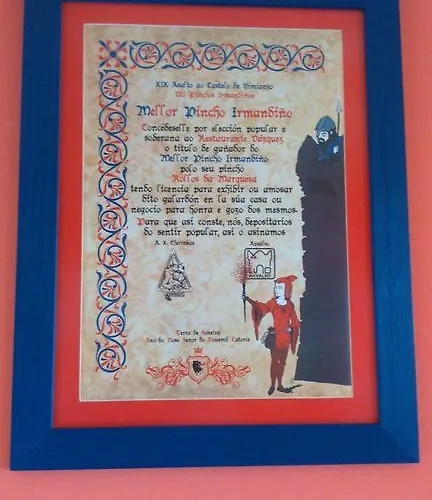 XIX Asalto ao Castelo de Vimianzo
VII Pinchos Irmandiños
Mellor Pincho Irmandiño
Concedeselle por elección popular e
soberana ao Restaurante Vázquez
o título de gañador do
Mellor Pincho Irmandiño
polo seu pincho
Rollos da Marquesa
tendo licencia para exhibir ou amosar
dito galardón en la súa casa ou
negocio para honra e gozo dos mesmos.
Para que así conste, nós, depositarios
do sentir popular, así o asinamos
A. X. Axvalso
Terra de Soneira
Ano do Noso Señor do Dousmil Catorce